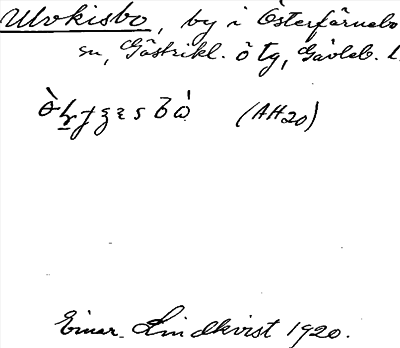 Ulvkisbo, by i Österfärnebo
sn, Gästrikl. ö tg, Gävleb. l.
(AH20)
Einar Lindkvist 1920.